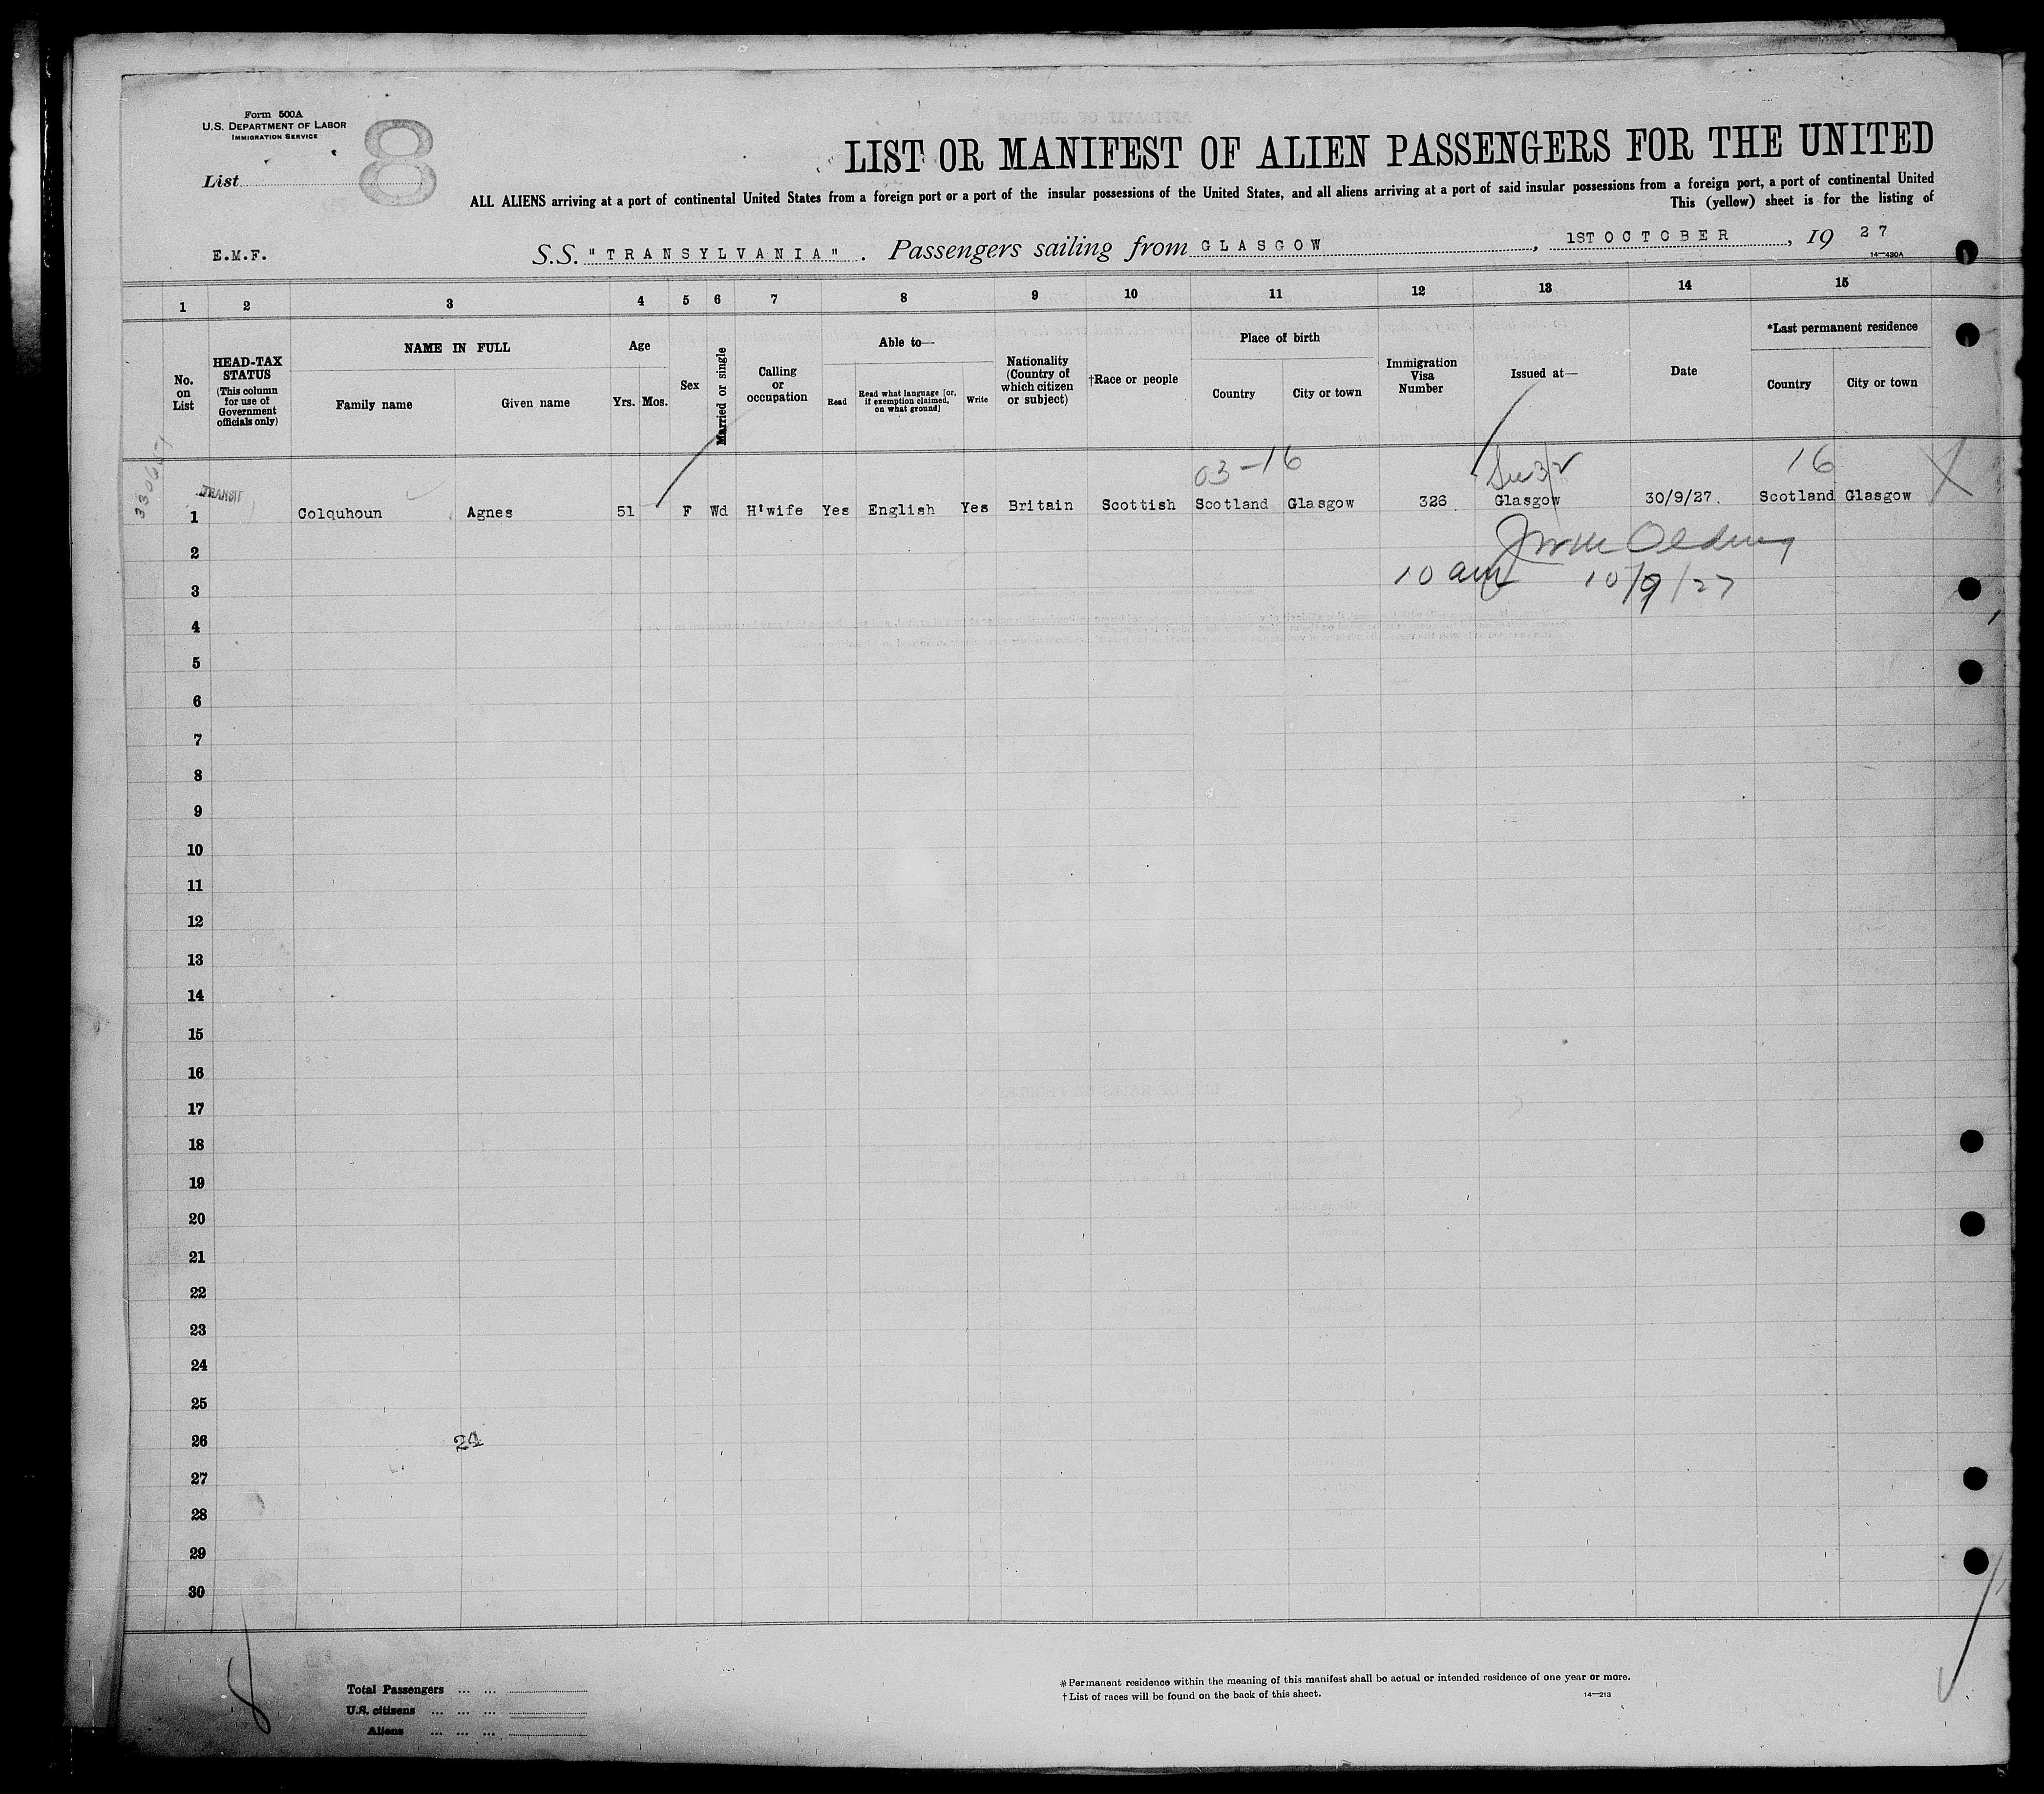 Form 500A
U.S. DEPARTMENT OF LABOR
IMMIGRATION SERVICE
List
8
LIST OR MANIFEST OF ALIEN PASSENGERS FOR THE UNITED
ALL ALIENS arriving at a port of continental United States from a foreign port or a port of the insular possessions of the United States, and all aliens arriving at a port of said insular possessions from a foreign port, a port of continental United
This (yellow) sheet is for the listing of
E.M.F.
S.S. "TRANSYLVANIA". Passengers sailing from GLASGOW, 1ST OCTOBER, 19 27
14—430A
1 2 3 4 5 6 7 8 9 10 11 12 13 14 15
No. on List
HEAD-TAX STATUS
(This column for use of Government officials only)
NAME IN FULL
Family name
Given name
Age
Yrs. Mos.
Sex
Married or single
Calling or occupation
Able to—
Read
Read what language [or, if exemption claimed, on what ground]
Write
Nationality (Country of which citizen or subject)
†Race or people
Place of birth
Country
City or town
Immigration Visa Number
Issued at—
Date
*Last permanent residence
Country
City or town
03-16
16
TRANSIT
1 Colquhoun Agnes 51 F Wd H'wife Yes English Yes Britain Scottish Scotland Glasgow 326 Glasgow 30/9/27. Scotland Glasgow
2
10 am 10/9/27
3
4
5
6
7
8
9
10
11
12
13
14
15
16
17
18
19
20
21
22
23
24
25
26 24
27
28
29
30
8
Total Passengers ... ...
U.S. citizens ... ... ...
Aliens ... ... ...
*Permanent residence within the meaning of this manifest shall be actual or intended residence of one year or more.
†List of races will be found on the back of this sheet.
14—213